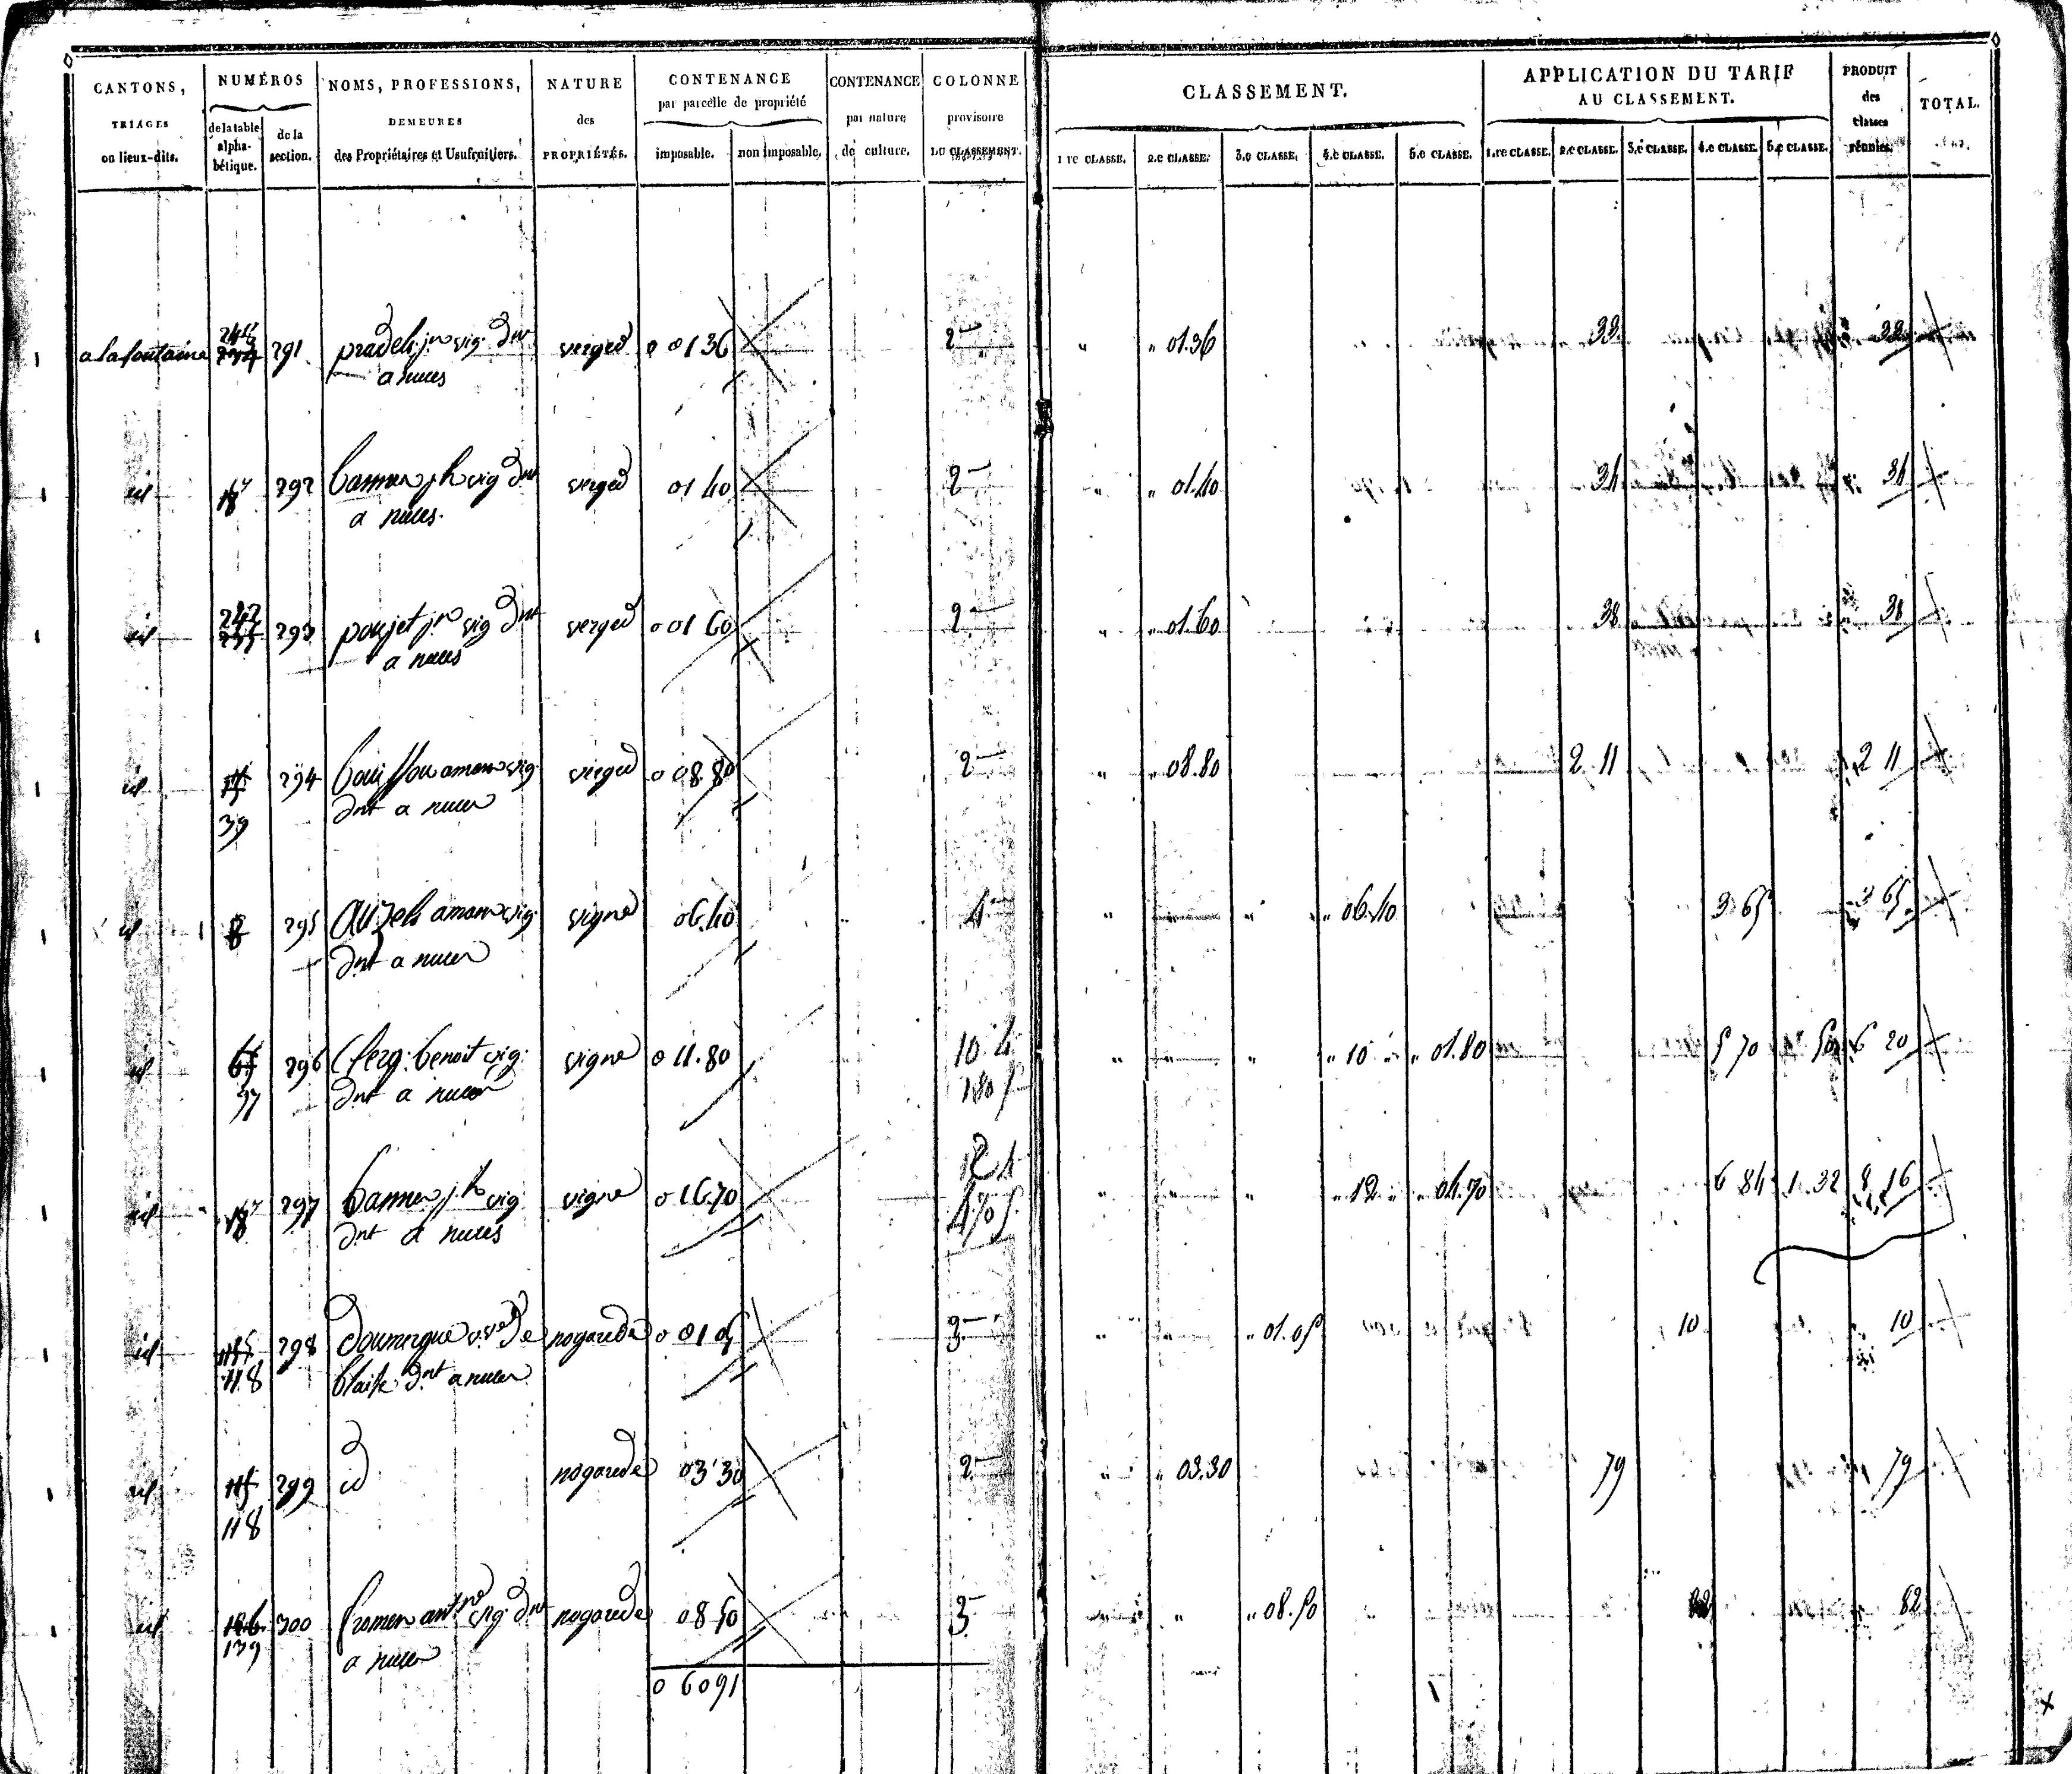 CANTONS, NUMÉROS NOMS, PROFESSIONS, NATURE CONTENANCE CONTENANCE COLONNE CLASSEMENT. APPLICATION DU TARIF PRODUIT TOTAL.
TRIAGES de la table alpha-bétique. de la section. DEMEURES des par parcelle de propriété par nature provisoire AU CLASSEMENT. des classes
ou lieux-dits. des Propriétaires et Usufruitiers. PROPRIÉTÉS. imposable. non imposable. de culture. DU CLASSEMENT. 1.re CLASSE. 2.e CLASSE. 3.e CLASSE. 4.e CLASSE. 5.e CLASSE. 1.re CLASSE. 2.e CLASSE. 3.e CLASSE. 4.e CLASSE. 5.e CLASSE. réunies.
a la fontaine 291 pradels jn vig. dnt verged 0 01 36 2 " " 01.36 33 33
a nuces
id 292 vig dnt verged 01 40 2 " " 01.40 34 34
a nuces.
id 242 293 poujet jn vig dnt verged 0 01 60 2 " " 01.60 38 38
a nuces
id 294 vig. verged 0 08.80 2 " " 08.80 2 11 2 11
39 dnt a nuces
id 8 295 auzels amans vig. vigne 06.40 4 " " " 06.40 3 65 3 65
dnt a nuces
id 296 benoit vig. vigne 0 11.80 10 4 " " " " 10 " " 01.80 5 70 50 6 20
37 dnt a nuces 180 5
id 297 vig vigne 0 16.70 12 4 " " " 12 " " 04.70 6 84 1.32 8 16
dnt a nuces 470 5
id 115 298 Doumergue v.ve de nogarede 0 01 05 3 " " 01.05 10 10
118 blaise dnt a nuces
id 115 299 id nogarede 03 30 2 " " 03.30 79 79
118
id 300 vig dnt nogarede 08 50 3 " " " 08.50 82
139 a nuces
0 6091